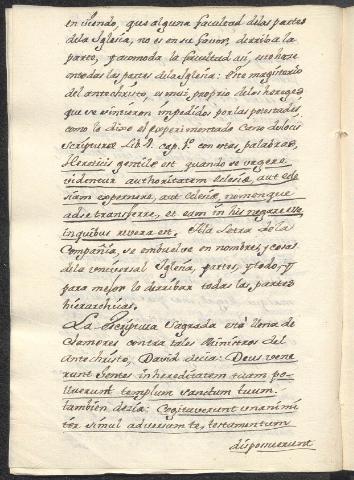 en viendo, que alguna facultad de las partes
de la Iglesia, no es en su favor, derriba la
parte, y acomoda la facultad asi, haze
en todas las partes de la Iglesia: Este magisterio
del antechristo, es mui proprio de los hereges
que se vinieron impedidos por las potestades
como lo dixo el experimentado Cano de locis
Scripturæ Lib. 4. cap. 1.º con estas palabras,
Hereticis gentile est quando se urgere
videntur authoritatem Eclesiæ, aut Ecle
siam contemnere, aut Eclesiæ, nomenque
ad se transferre, et eam in his negare esse
in quibus revera est. Esta Secta de la
Compañia, se embuelve en nombres, y cosas
de la universal Iglesia, partes, y todo, y
para mejor lo derribar todas las partes
hierarchicas.
La Escriptura Sagrada está llena de
clamores contra tales Ministros del
Antechristo, David decia: Deus vene
runt gentes in hereditatem tuam po
lluerunt templum sanctum tuum.
tambien dezia: Cogitaverunt unanimi
ter simul adversum te testamentum
disposuerunt